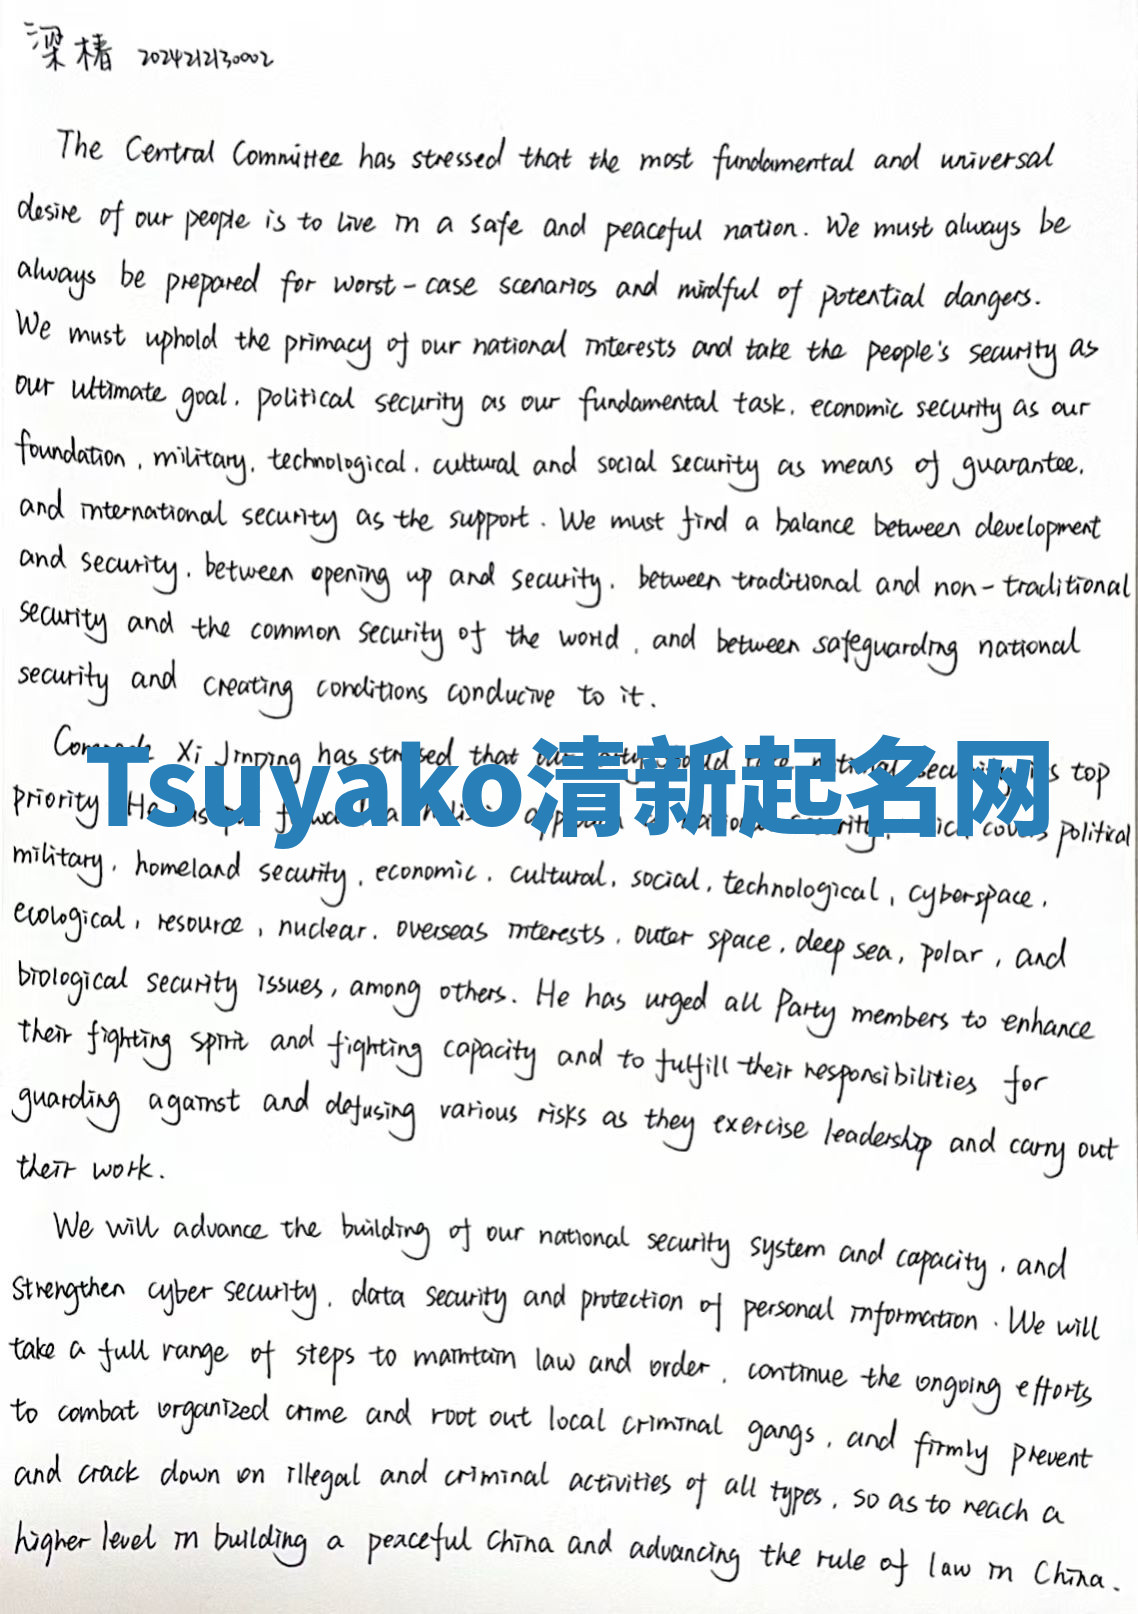 梁椿 2024212130002
The Central Committee has stressed that the most fundamental and universal
desire of our people is to live in a safe and peaceful nation. We must always be
always be prepared for worst-case scenarios and mindful of potential dangers.
We must uphold the primacy of our national interests and take the people's security as
our ultimate goal, political security as our fundamental task, economic security as our
foundation, military, technological, cultural and social security as means of guarantee,
and international security as the support. We must find a balance between development
and security, between opening up and security, between traditional and non-traditional
security and the common security of the world, and between safeguarding national
security and creating conditions conducive to it.
Xi Jinping has stressed that national security top
Tsuyako清新起名网
priority. He political
military, homeland security, economic, cultural, social, technological, cyberspace,
ecological, resource, nuclear, overseas interests, outer space, deep sea, polar, and
biological security issues, among others. He has urged all Party members to enhance
their fighting spirit and fighting capacity and to fulfill their responsibilities for
guarding against and defusing various risks as they exercise leadership and carry out
their work.
We will advance the building of our national security system and capacity, and
strengthen cyber security, data security and protection of personal information. We will
take a full range of steps to maintain law and order, continue the ongoing efforts
to combat organized crime and root out local criminal gangs, and firmly prevent
and crack down on illegal and criminal activities of all types, so as to reach a
higher level in building a peaceful China and advancing the rule of law in China.